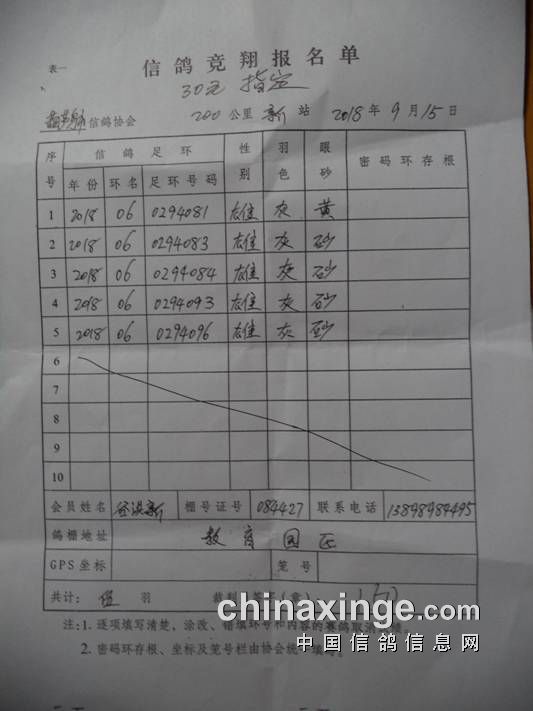 表一
信鸽竞翔报名单
30元 指定
信鸽协会 200公里 新 站 2018年9月15日
序号 信鸽足环 性别 羽色 眼砂 密码环存根
年份 环名 足环号码
1 2018 06 0294081 雄 灰 黄
2 2018 06 0294083 雄 灰 砂
3 2018 06 0294084 雄 灰 砂
4 2018 06 0294093 雄 灰 砂
5 2018 06 0294096 雄 灰 砂
6
7
8
9
10
会员姓名 谷洪新 棚号证号 084427 联系电话 13898989495
鸽棚地址 教育园区
GPS坐标 笼号
共计: 伍 羽 裁判 签 (章):
注:1. 逐项填写清楚、涂改、错填环号和内容的赛鸽取消
2. 密码环存根、坐标及笼号栏由协会统一填写。
chinaxinge.com
中国信鸽信息网